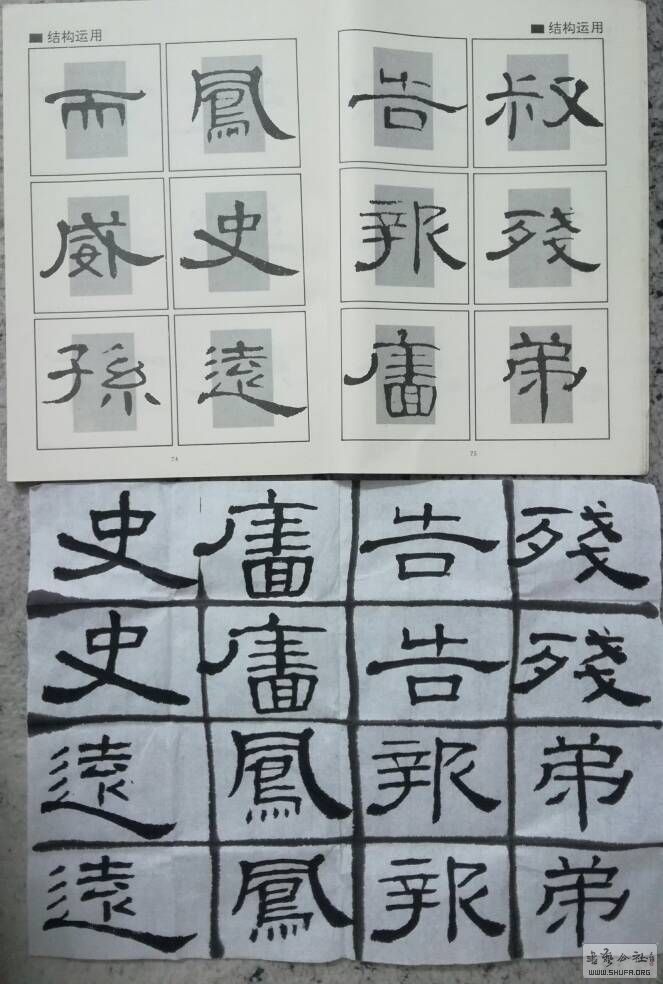 结构运用
而 鳳
威 史
孫 遠
74
结构运用
告 叔
報 殘
廧 弟
75
史 廧 告 殘
史 廧 告 殘
遠 鳳 報 弟
遠 鳳 報 弟
书艺公社
WWW.SHUFA.ORG